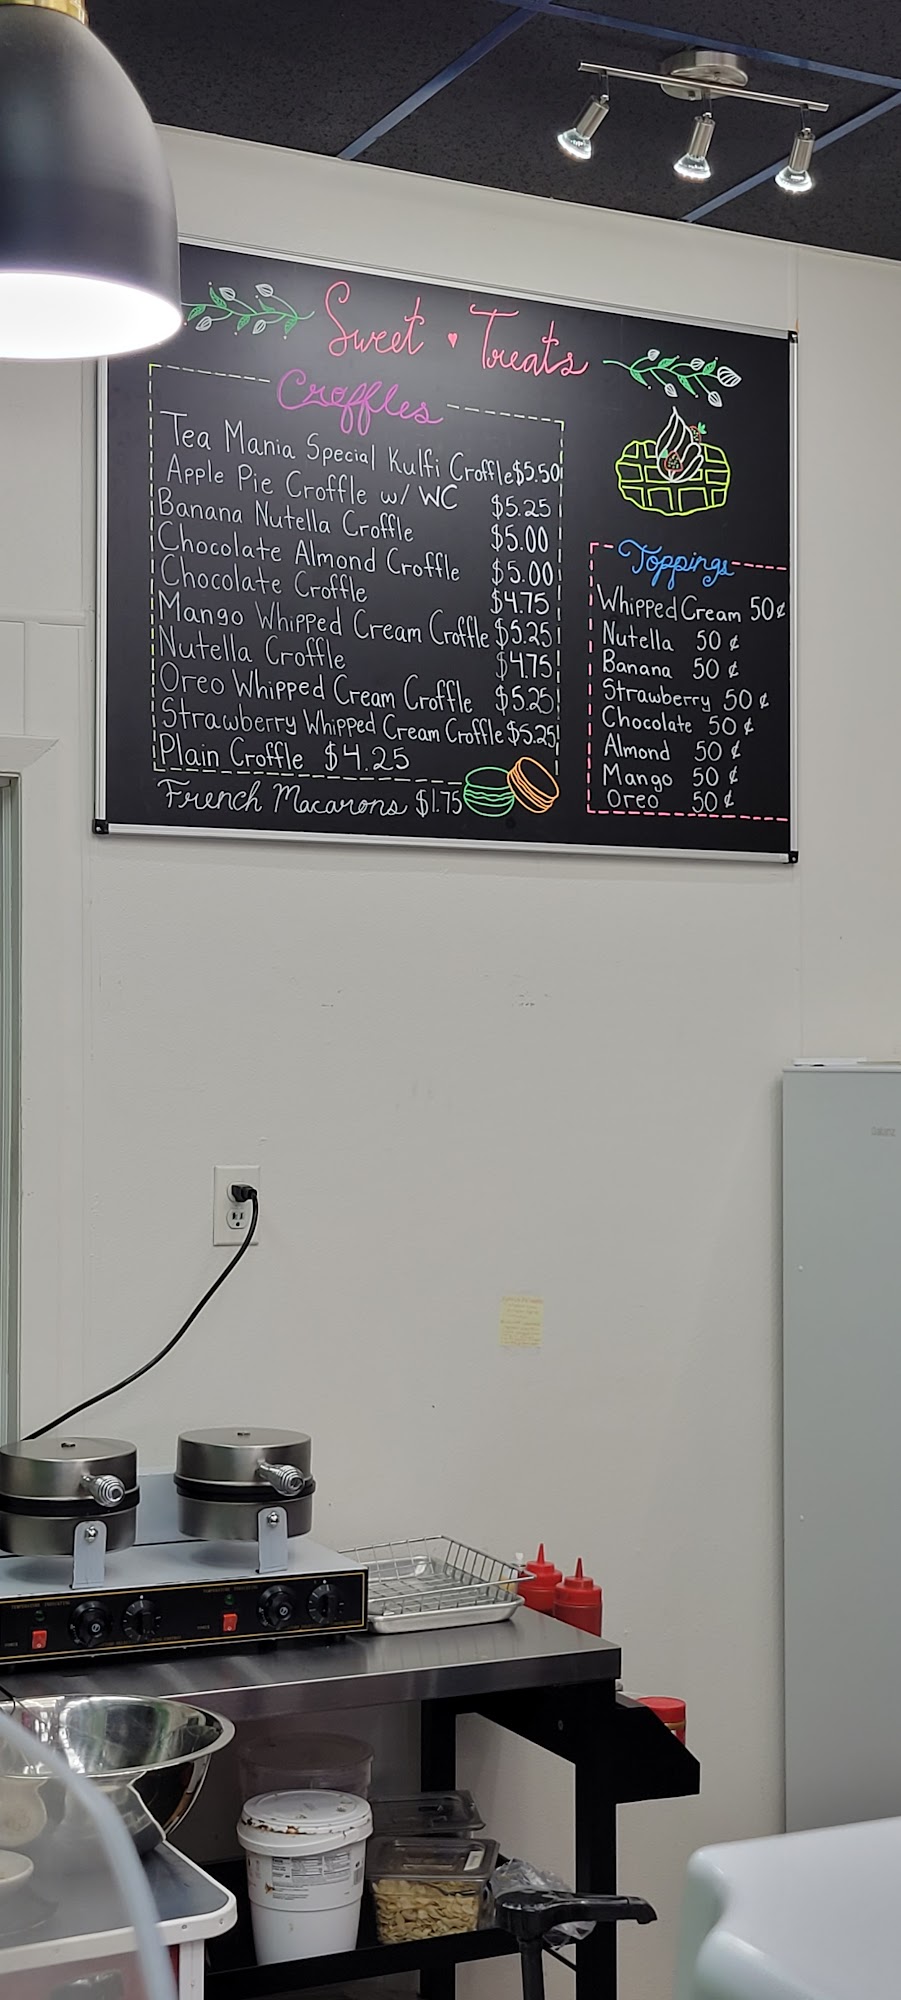 Sweet ♥ Treats
Croffles
Tea Mania Special Kulfi Croffle $5.50
Apple Pie Croffle w/ WC $5.25
Banana Nutella Croffle $5.00
Chocolate Almond Croffle $5.00
Chocolate Croffle $4.75
Mango Whipped Cream Croffle $5.25
Nutella Croffle $4.75
Oreo Whipped Cream Croffle $5.25
Strawberry Whipped Cream Croffle $5.25
Plain Croffle $4.25
French Macarons $1.75
Toppings
Whipped Cream 50¢
Nutella 50¢
Banana 50¢
Strawberry 50¢
Chocolate 50¢
Almond 50¢
Mango 50¢
Oreo 50¢